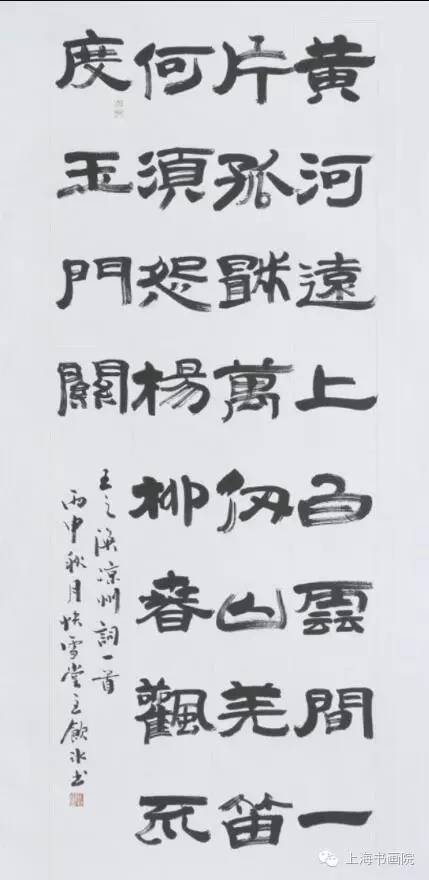 黄河遠上白雲間一
片孤城萬仞山羌笛
何須怨楊柳春飌不
度玉門關
王之渙凉州詞一首
丙申秋月快雪堂主飲冰书
上海书画院